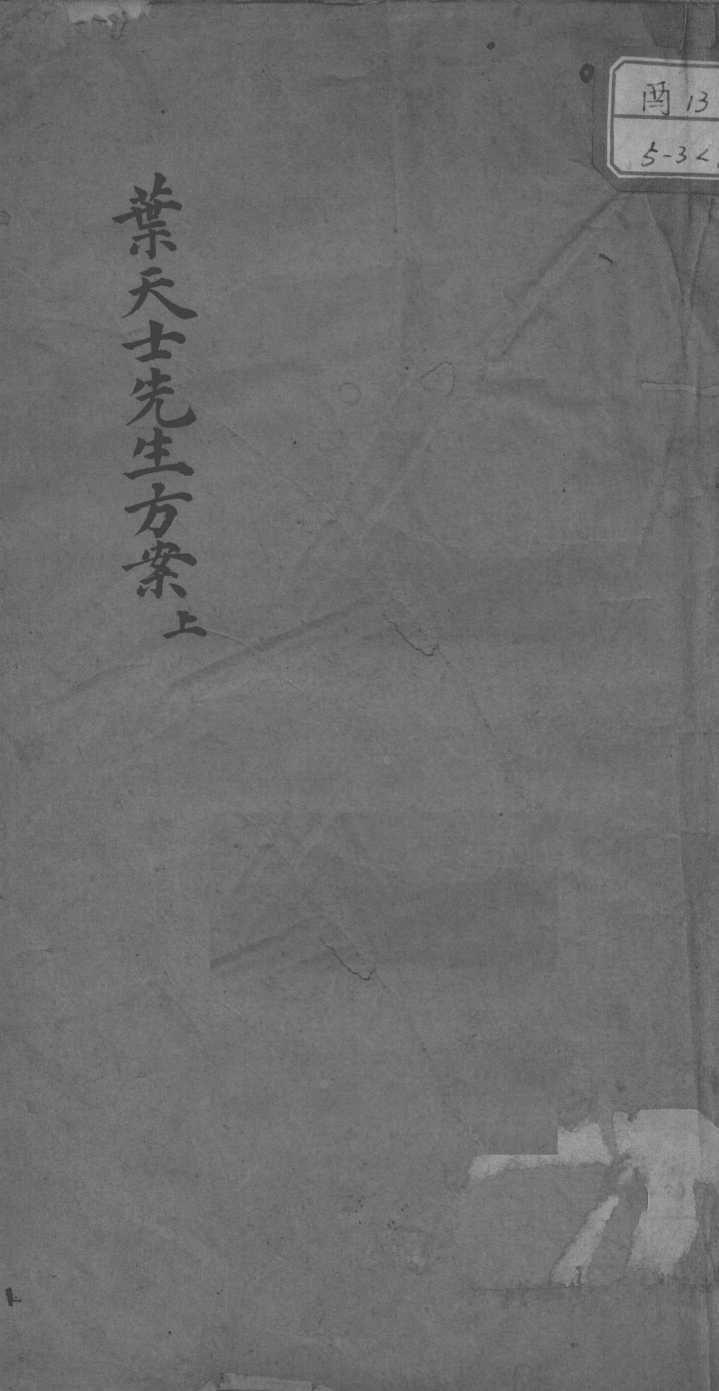 葉天士先生方案 上
酉 13
5-3<